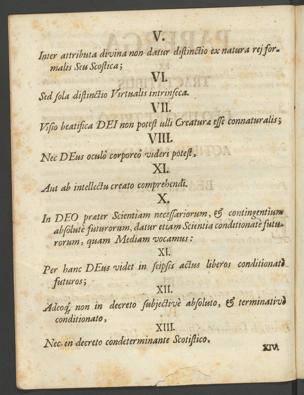 V.
Inter attributa divina non datur distinctio ex natura rej for-
malis Seu Scotica;
VI.
Sed sola distinctio Virtualis intrinseca.
VII.
Visio beatifica DEI non potest ulli Creaturæ esse connaturalis;
VIII.
Nec DEus oculò corporeò videri potest,
XI.
Aut ab intellectu creato comprehendi.
X.
In DEO præter Scientiam necessariorum, & contingentium
absolutè futurorum, datur etiam Scientia conditionatè futu-
rorum, quam Mediam vocamus:
XI.
Per hanc DEus videt in seipsis actus liberos conditionatè
futuros;
XII.
Adeoq; non in decreto subjectivè absoluto, & terminativè
conditionato,
XIII.
Nec in decreto condeterminante Scotistico.
XIV.